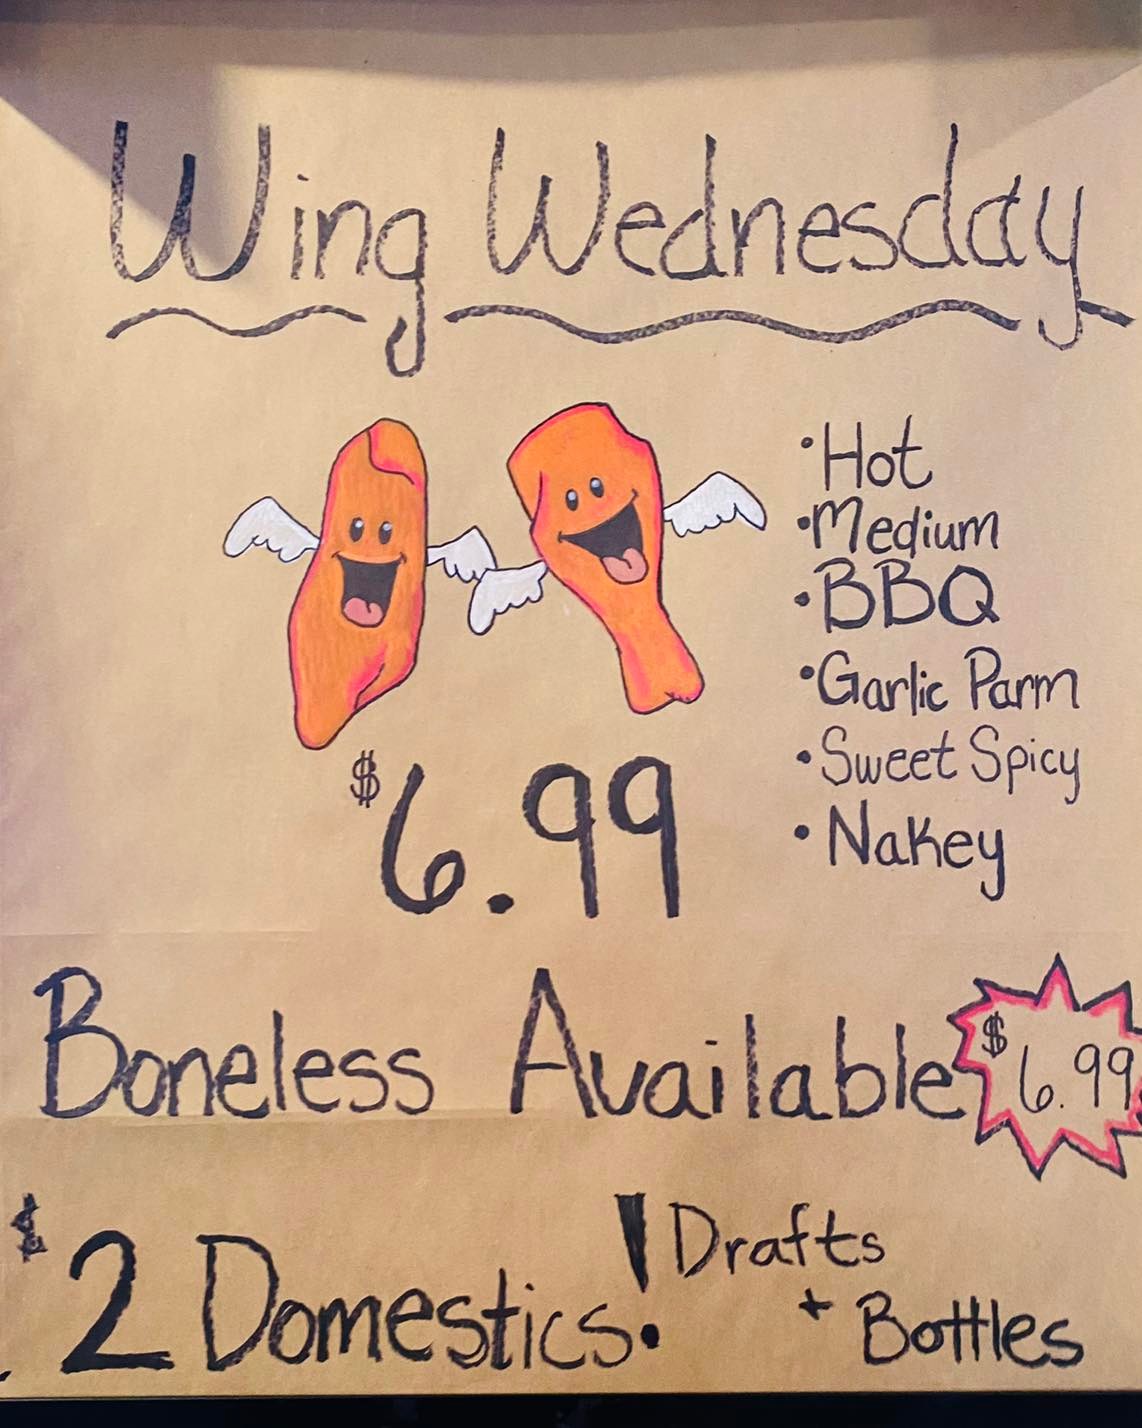 Wing Wednesday
• Hot
• Medium
• BBQ
• Garlic Parm
• Sweet Spicy
• Nakey
$6.99
Boneless Available $6.99
$2 Domestics! Drafts
+ Bottles